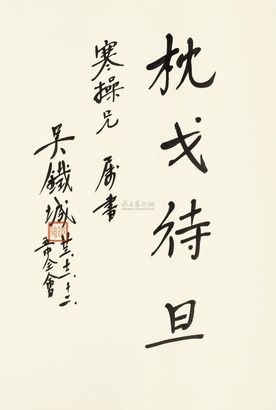 枕戈待旦
寒操兄 属書
吳鐵城